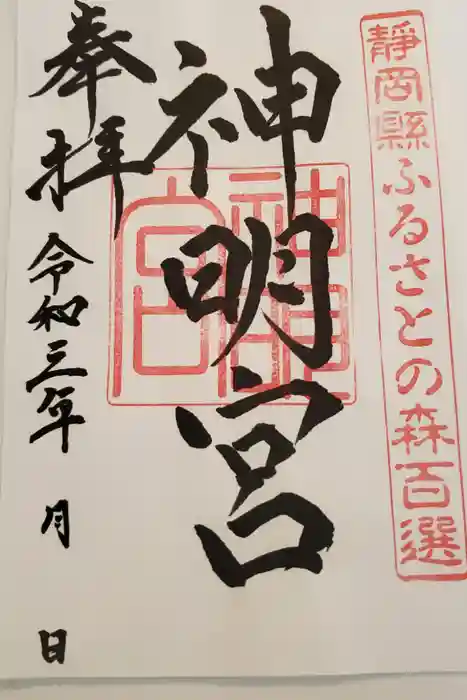 静岡縣ふるさとの森百選
神明宮
神明宮
奉拝
令和三年 月 日